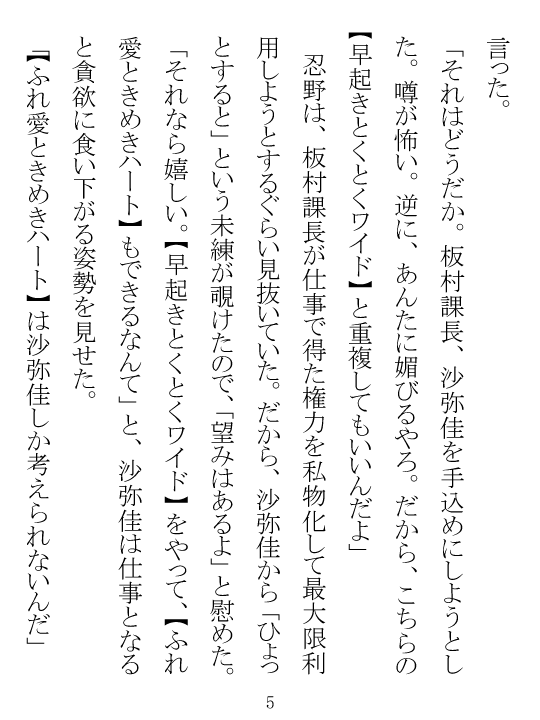 言った。
「それはどうだか。板村課長、沙弥佳を手込めにしようとし
た。噂が怖い。逆に、あんたに媚びるやろ。だから、こちらの
【早起きとくとくワイド】と重複してもいいんだよ」
　忍野は、板村課長が仕事で得た権力を私物化して最大限利
用しようとするぐらい見抜いていた。だから、沙弥佳から「ひょっ
とすると」という未練が覗けたので、「望みはあるよ」と慰めた。
「それなら嬉しい。【早起きとくとくワイド】をやって、【ふれ
愛ときめきハート】もできるなんて」と、沙弥佳は仕事となる
と貪欲に食い下がる姿勢を見せた。
「【ふれ愛ときめきハート】は沙弥佳しか考えられないんだ」
5